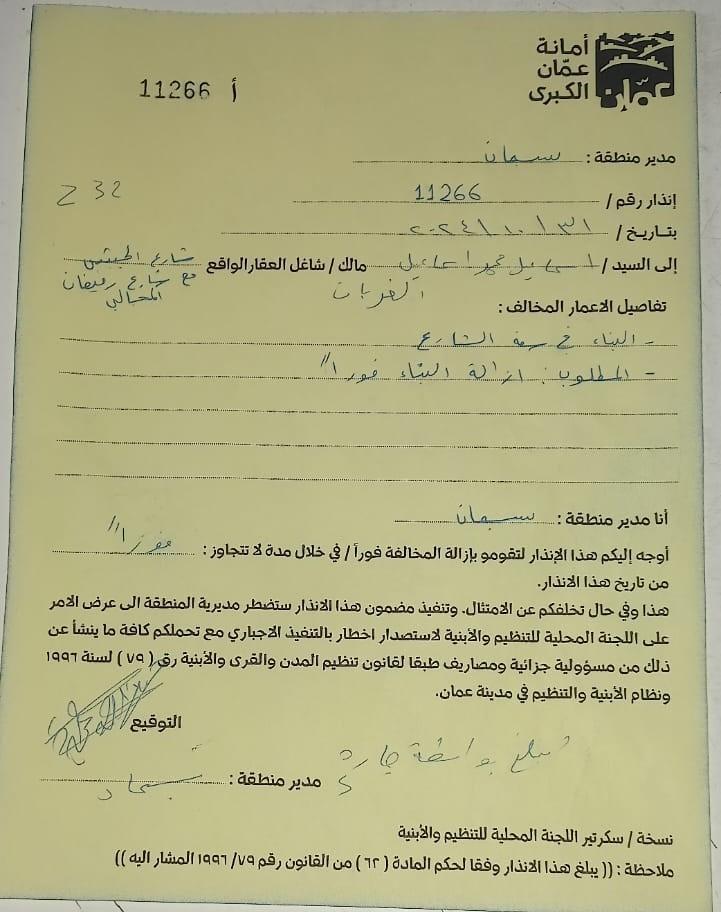 أمانة
عمّان
الكبرى
أ 11266
مدير منطقة :
إنذار رقم / 11266
Z 32
بتاريخ / ٣١ / ١٠ / ٢٠٢٤
إلى السيد / اسماعيل محمد اسماعيل مالك / شاغل العقار الواقع شارع
الغربات مع شارع
تفاصيل الاعمار المخالف :
- البناء في سعة الشارع
- المطلوب : ازالة البناء فوراً
أنا مدير منطقة :
أوجه إليكم هذا الإنذار لتقومو بإزالة المخالفة فوراً / في خلال مدة لا تتجاوز : فوراً
من تاريخ هذا الانذار.
هذا وفي حال تخلفكم عن الامتثال. وتنفيذ مضمون هذا الانذار ستضطر مديرية المنطقة الى عرض الامر
على اللجنة المحلية للتنظيم والأبنية لاستصدار اخطار بالتنفيذ الاجباري مع تحملكم كافة ما ينشأ عن
ذلك من مسؤولية جزائية ومصاريف طبقا لقانون تنظيم المدن والقرى والأبنية رق ( ٧٩ ) لسنة ١٩٩٦
ونظام الأبنية والتنظيم في مدينة عمان.
التوقيع
تبلغ بواسطة
مدير منطقة :
نسخة / سكرتير اللجنة المحلية للتنظيم والأبنية
ملاحظة : (( يبلغ هذا الانذار وفقا لحكم المادة ( ٦٢ ) من القانون رقم ٧٩ /١٩٩٦ المشار اليه ))